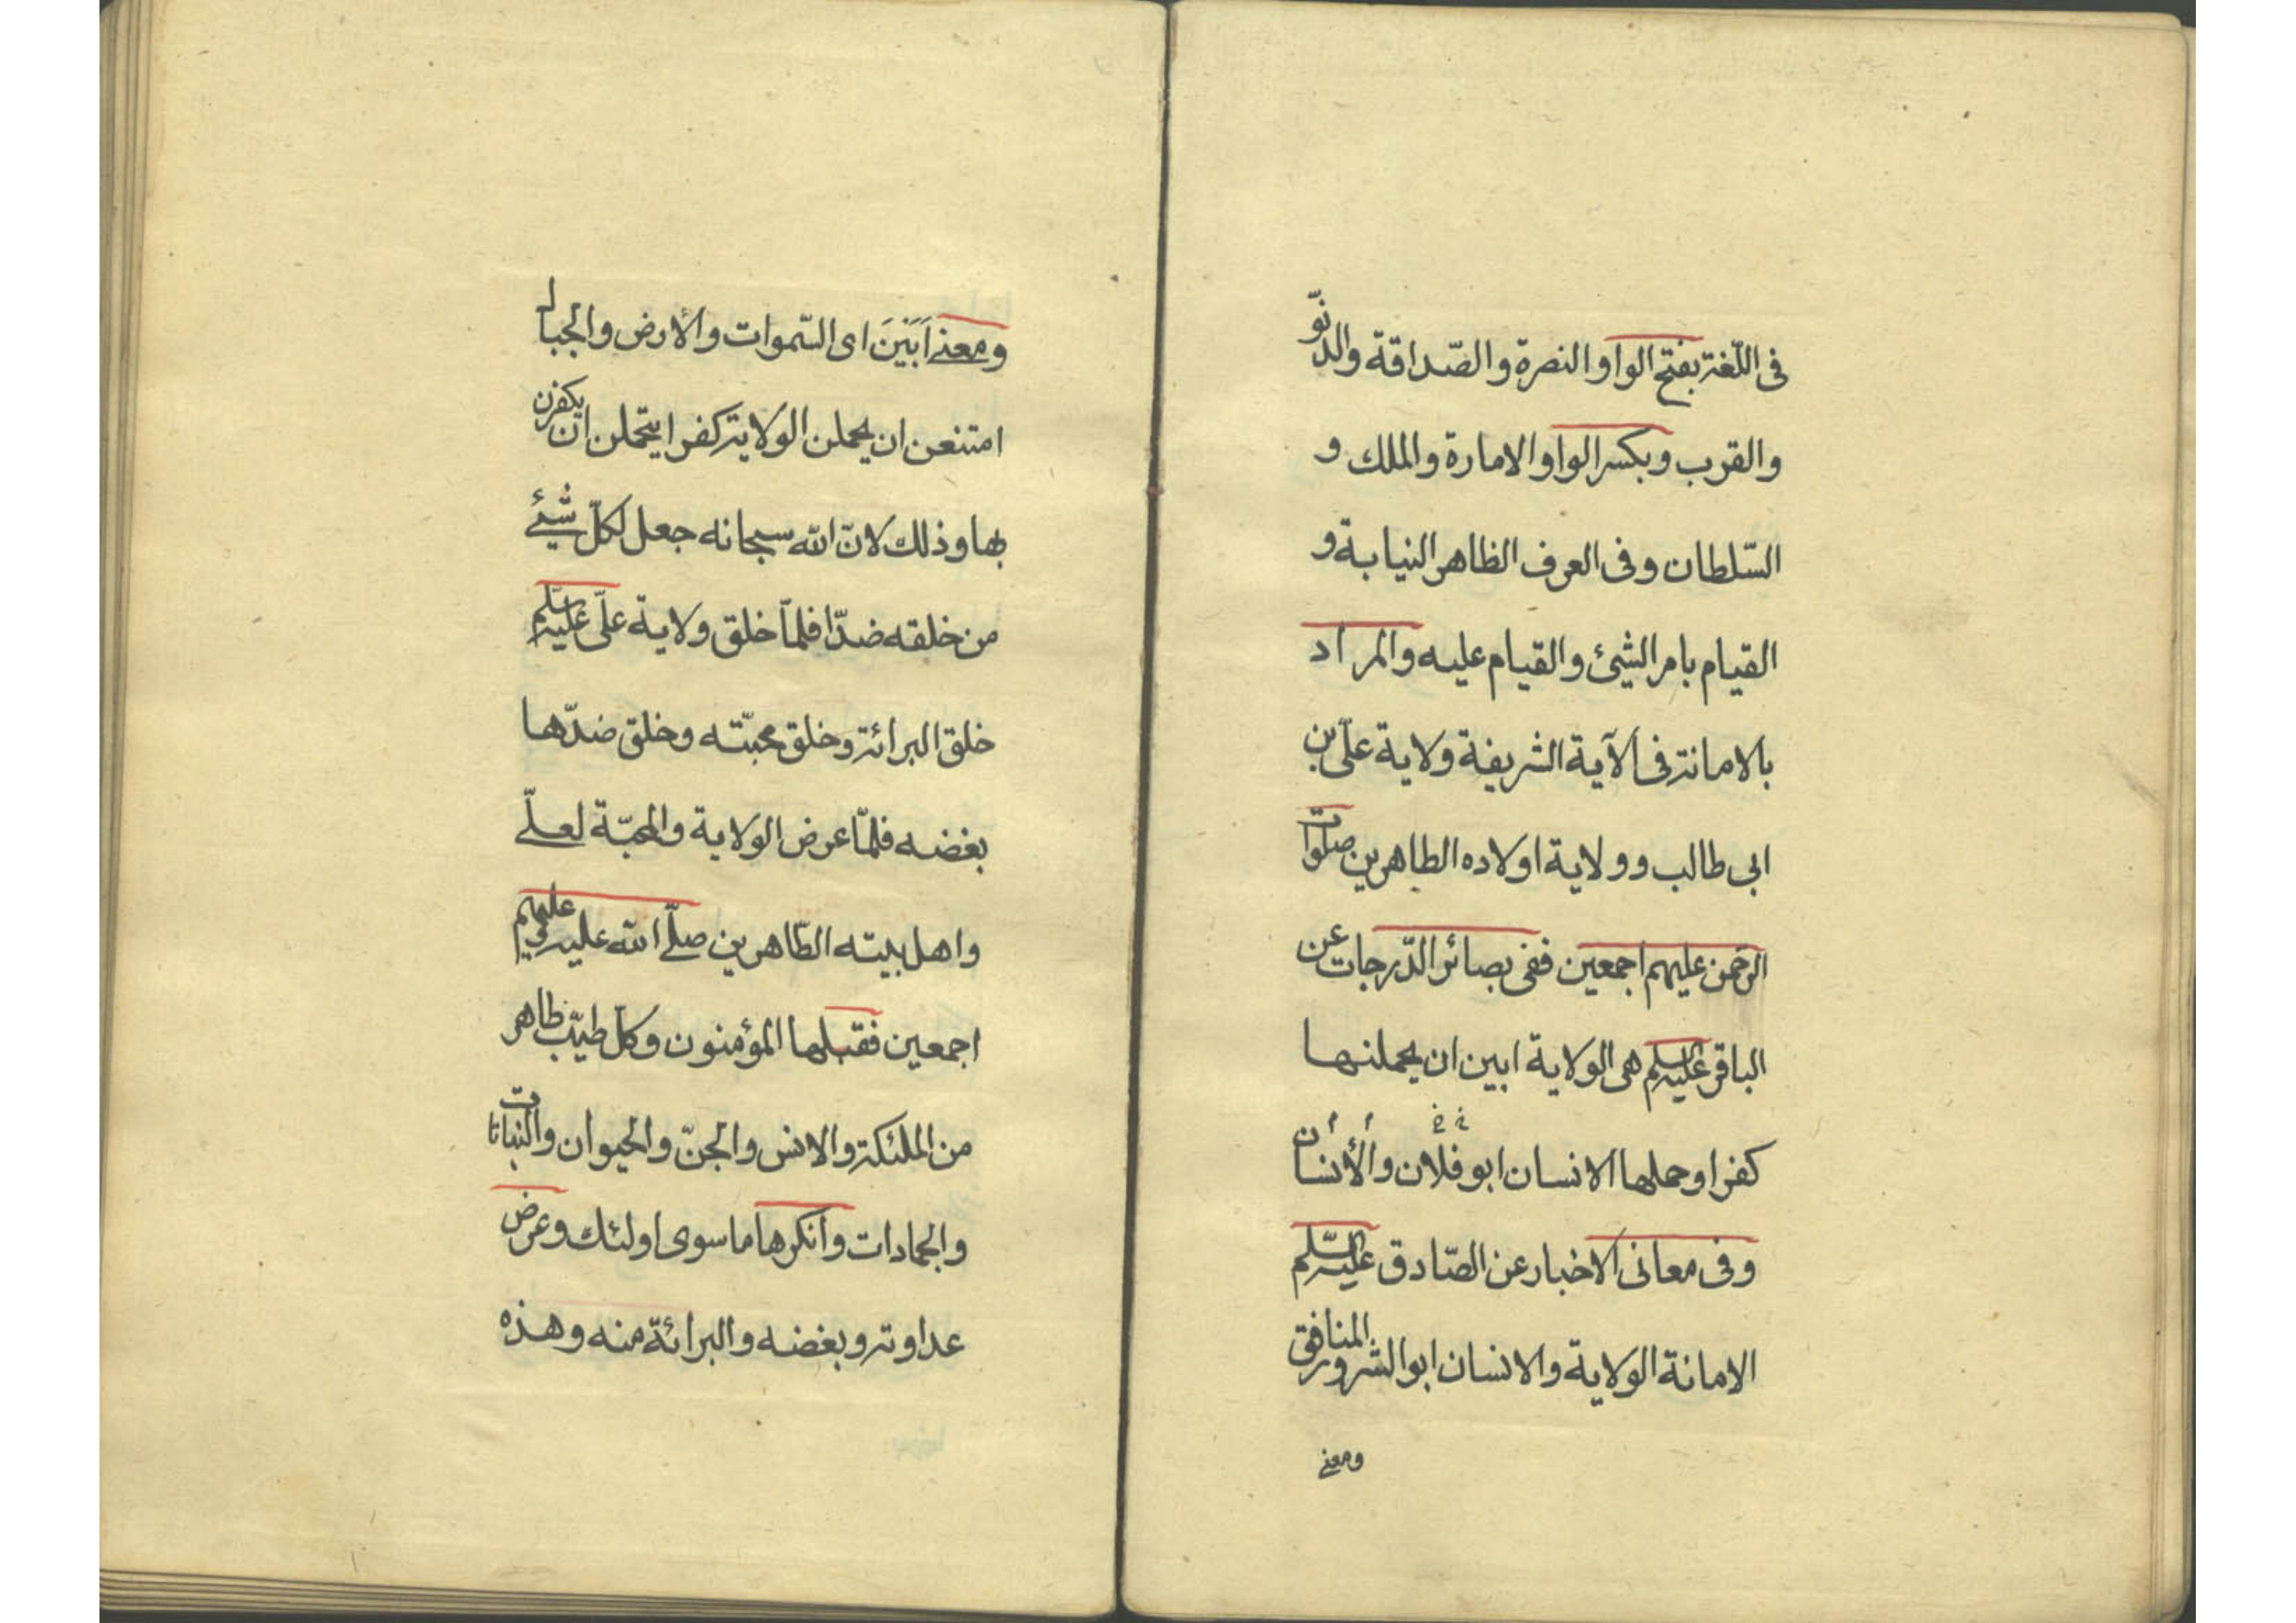 فى اللّغة بفتح الواو النصرة والصّداقة والدنوّ
والقرب وبكسر الواو الامارة والملك و
السّلطان وفى العرف الظاهر النيابة و
القيام بامر الشيئ والقيام عليه والمراد
بالامانة فى الآية الشريفة ولاية علىّ بن
ابى طالب وولاية اولاده الطاهرين صلوات
الرحمن عليهم اجمعين ففى بصائر الدّرجات عن
الباقر عليه السلم هى الولاية ابين ان يحملنها
كفرا وحملها الانسان ابو فلان والأنسان
وفى معانى الاخبار عن الصّادق عليه السّلم
الامانة الولاية والانسان ابو الشرور المنافق
ومعنى
ومعنى اَبَيْنَ اى السّموات والأرض والجبال
امتنعن ان يحملن الولاية كفرا يتحملن ان يكفرن
بها وذلك لانّ الله سبحانه جعل لكلّ شيئ
من خلقه ضدّا فلمّا خلق ولاية علىّ عليه السلم
خلق البرائة وخلق محبّته وخلق ضدّها
بغضه فلمّا عرض الولاية والمحبّة لعلىّ
واهل بيته الطّاهرين صلّى الله عليه وعليهم
اجمعين فقبلها المؤمنون وكلّ طيّب طاهر
من الملئكة والانس والجنّ والحيوان والنباتات
والجمادات وانكرها ما سوى اولئك وعرض
عداوته وبغضه والبرائة منه وهذه